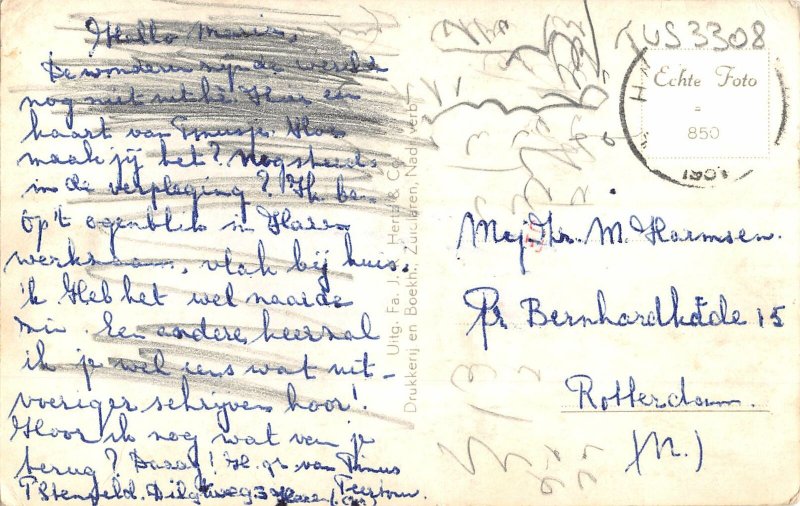 Hello Marien,
De wonderen zijn de wereld
nog niet uit hè. Hier een
kaart van Tinusje. Hoe
maak jij het? Nog steeds
in de verpleging? Ik ben
op't ogenblik in Haren
werkzaam, vlak bij huis.
'k Heb het wel naar de
zin. Een andere keer zal
ik je wel eens wat uit-
voeriger schrijven hoor!
Hoor ik nog wat van je
terug? Daaag! H. gr. van Tinus
T Stengfeld. Dilgtweg 3 Haren (Gr)
Uitg. Fa. J. Hertz & Co
Drukkerij en Boekh., Zuidlaren, Nadr. verb.
TUS 3308
Echte Foto
=
850
Mej. M. Harmsen.
Pr Bernhardkade 15
Rotterdam.
(N.)